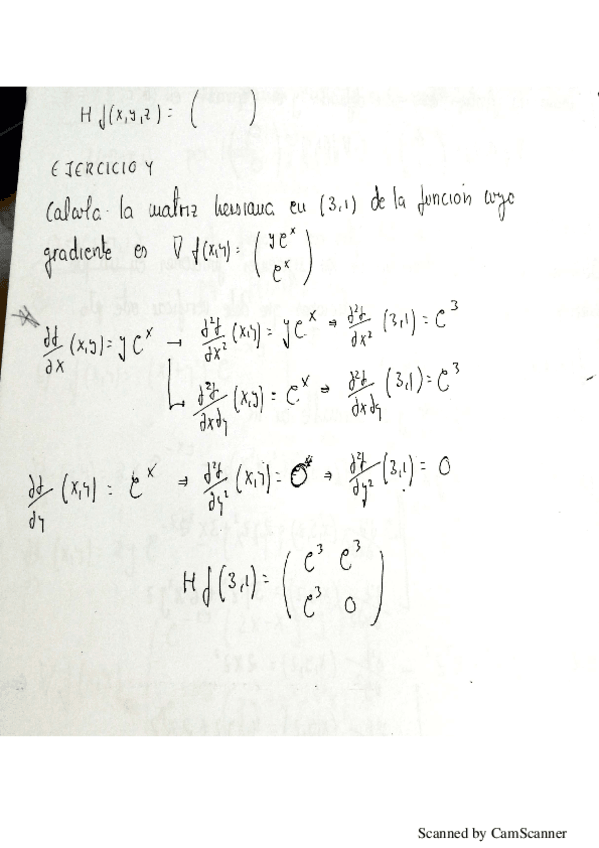 H f(x,y,z) = (   )
EJERCICIO 4
Calcula la matriz hessiana en (3,1) de la función cuyo
gradiente es ∇f(x,y) = (ye^x
e^x)
∂f/∂x (x,y) = ye^x → ∂²f/∂x² (x,y) = ye^x ⇒ ∂²f/∂x² (3,1) = e^3
↳ ∂²f/∂x∂y (x,y) = e^x ⇒ ∂²f/∂x∂y (3,1) = e^3
∂f/∂y (x,y) = e^x ⇒ ∂²f/∂y² (x,y) = 0 ⇒ ∂²f/∂y² (3,1) = 0
H f(3,1) = (e^3 e^3
e^3 0)
Scanned by CamScanner